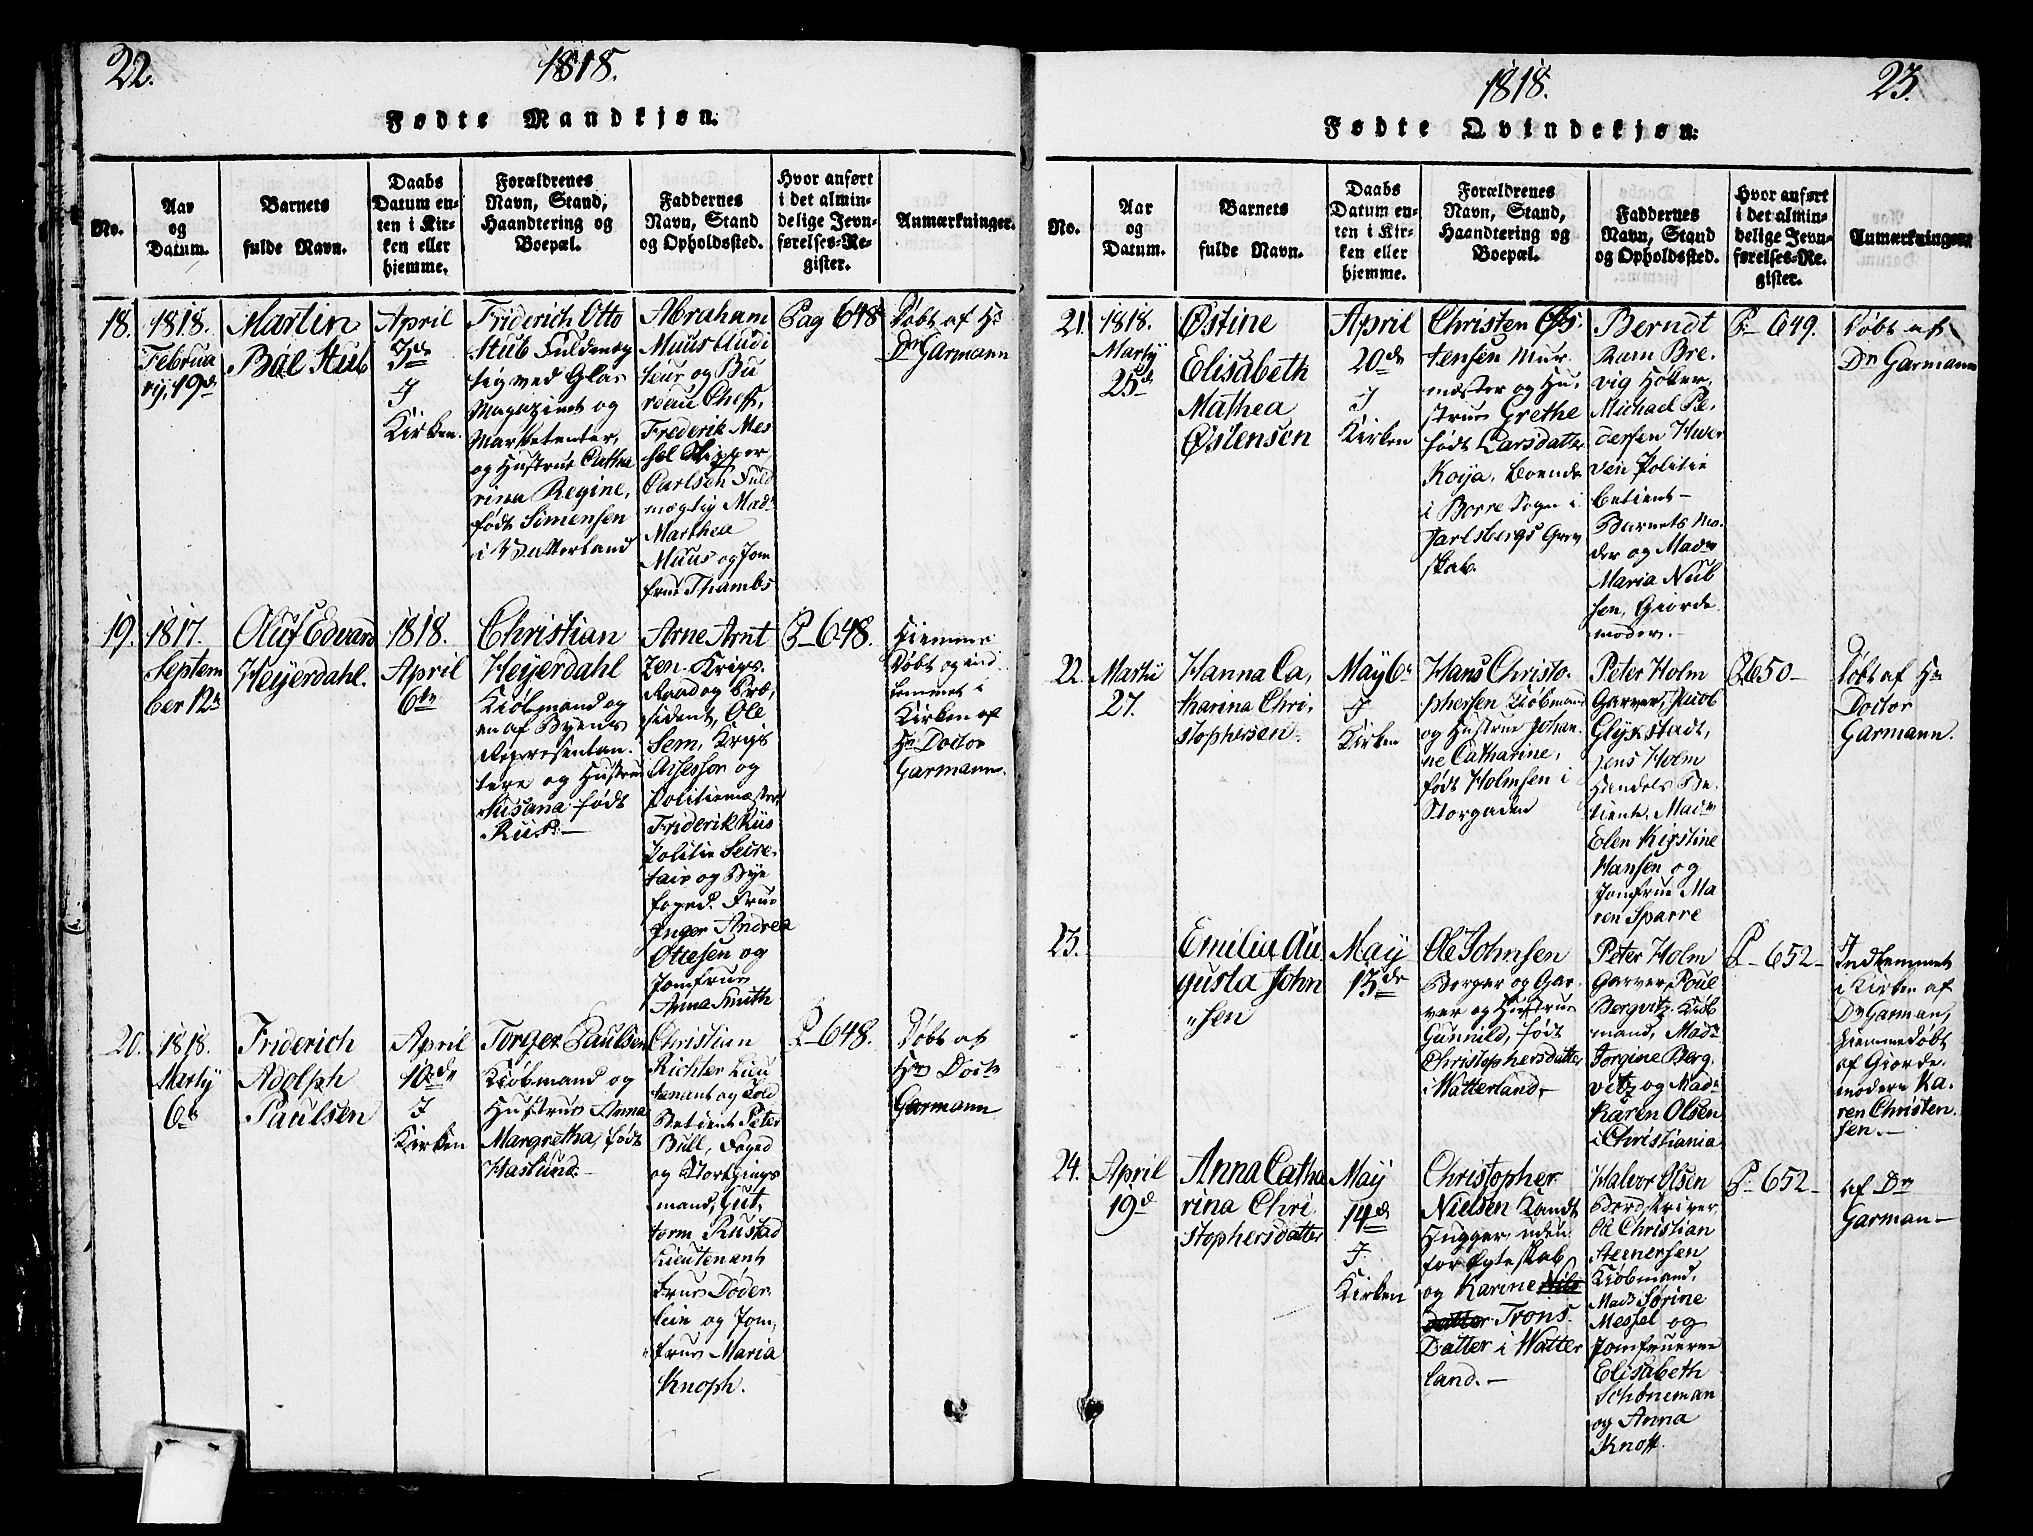 22.
1818.
Fødte Mandkjøn.
No.
Aar
og
Datum.
Barnets
fulde Navn.
Daabs
Datum en-
ten i Kir-
ken eller
hjemme.
Forældrenes
Navn, Stand,
Haandtering og
Boepæl.
Faddernes
Navn, Stand
og Opholdssted.
Hvor anført
i det almin-
delige Jevn-
førelses-Re-
gister.
Anmærkninger.
18.
1818.
Februa
rij, 19d
Martin
Bøe Stub
April
3de
I
Kirken.
Friderich Otto
Stub Fuldmæg
tig ved Glas
Magazinet og
Marketenter,
og Hustrue Catha
rina Regine,
født Simensen
i Vatterland
Abraham
Muus Audi
teur og Bu
reau Cheff,
Frederik Mes
sel Skipper
Carlsen Fuld
mægtig Mad.
Marthea
Muus og Jom
frue Thambs
Pag 648
Døbt af Hr
Dr Garmann
19.
1817.
Septem
ber 12te
Oluf Edvard
Heyerdahl.
1818.
April
6te
Christian
Heyerdahl
Kiøbmand og
en af Byens
Representan.
tere og Hustrue
Susana født
Rus.
Arne Arnt
zen Krigs
Raad og Præ,
sident, Ole
Sem, Krigs
Assessor og
Politiemæster
Friderik Rüs
Politie Secre-
tair og Bye
foged. Frue
Inger Andrea
Ottesen og
Jomfrue
Anna Smith
P- 648.
Hiemme
Døbt og ind
kommet i
Kirken af
Hr Doctor
Garmann.
20.
1818.
Martÿ
6te
Friderich
Adolph
Paulsen
April
10de
I
Kirken
Torger Paulsen
Kiøbmand og
Hustrue Anna
Margretha, født
Haslund.-
Christian
Richter Lieu
tenant og Told
Betient Peter
Bull, Foged
og Storthings
mand, Gut,
torm Rustad
Lieutenant
Frue Døder
lein og Jom,
frue Maria
Knoph.
P- 648.
Døbt af
Hr Doctr
Garmann
1818.
23.
Fødte Qvindekjøn.
No.
Aar
og
Datum.
Barnets
fulde Navn.
Daabs
Datum en-
ten i Kir-
ken eller
hjemme.
Forældrenes
Navn, Stand,
Haandtering og
Boepæl.
Faddernes
Navn, Stand
og Opholdssted.
Hvor anført
i det almin-
delige Jevn-
førelses-Re-
gister.
Anmærkninger.
21.
1818.
Martÿ
25de
Østine
Elisabeth
Mathea
Østensen
April
20de
I
Kirken
Christen Øs.
tensen Mur,
mæster og Hu,
strue Grethe
født Larsdatter
Koya, Boende
i Borre Sogn i
Jarlsbergs Grev
skab.
Berndt
Ram Bre,
vig Høker,
Michael Pe,
dersen Hver
ven Politie
betient-
Barnets Mo,
der og Madm
Maria Nub
sen, Giorde
moder.-
P- 649.
Døbt af
Dr Garmann
22.
Martii
27.
Hanna Ca,
tharina Chri,
stophersen
May 6te
I
Kirken
Hans Christo,
phersen Kiøbmand
og Hustrue Johan
ne Catharine,
født Holmsen i
Storgaden
Peter Holm
Garver, Jacob
Glykstadt,
Jens Holm
Handels Be,
tiente, Madm
Elen Kirstine
Hansen og
Jomfrue Ma
ren Sparre
P. 650-
Døbt af Hr
Doctor
Garmann.
23.
Emilia Au
gusta John
"sen
May
13de
Ole Johnsen
Borger og Gar,
ver og Hustrue
Gunnild, født
Christophersdatter
i Watterland,-
Peter Holm
Garver, Poul
Bergvitz, Kiøb
mand, Madm
Jorgine Berg,
vitz og Madm
Karen Olsen
i Christiania
P- 652-
Indkommet
i Kirken af
Dr Garman,
hiemmedøbt
af Giorde,
modern Ka,
ren Christen,
sen.-
24.
April
19d
Anna Catha
rina Chri
stophersdatter
May
14de
I
Kirken
Christopher
Nielsen Kandt
Hugger, uden
for Ægteskab
og Karine Nils
datter Trons
Datter i Watter
land.-
Halvor Olsen
Bordskriver
Ole Christian
Stenersen
Kiøbmand,
Mads Sørine
Messel og
Jomfruerne
Elisabeth
Schøneman
og Anna
Knoff.
P- 652-
af Dr
Garman-